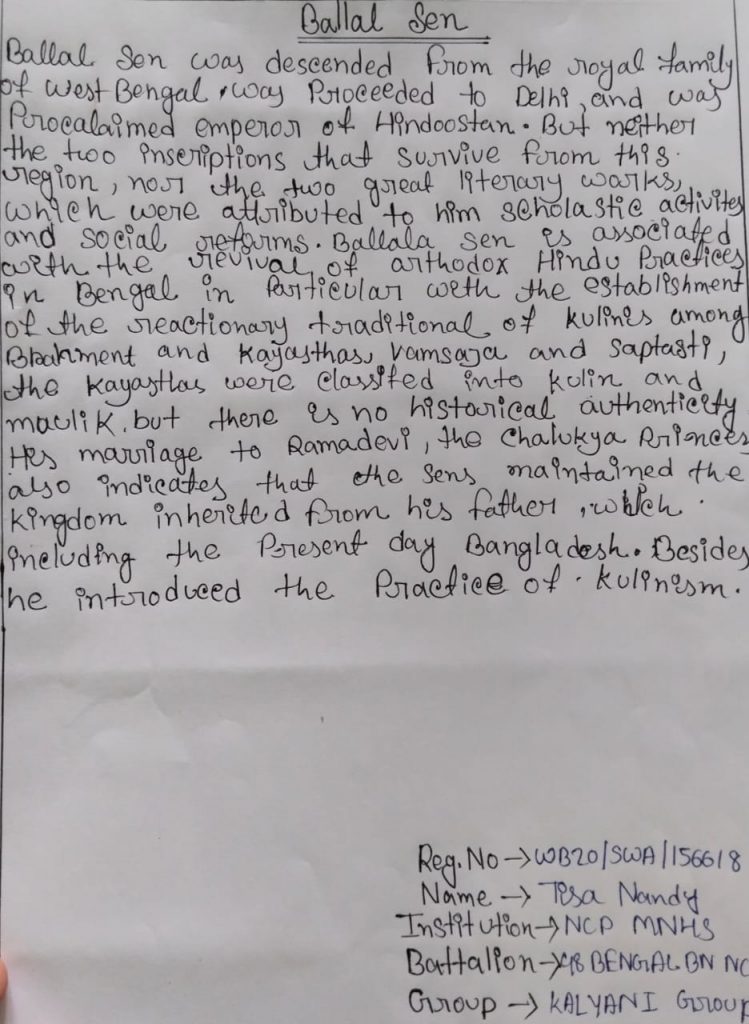 Ballal Sen
Ballal Sen was descended from the royal family
of West Bengal, was Proceeded to Delhi, and was
Procalaimed emperor of Hindoostan. But neither
the two inseriptions that survive from this.
region, nor the two great literary works,
which were attributed to him scholastic activites
and social reforms. Ballala Sen is associated
with the revival of arthodox Hindu Practices
in Bengal in Particular with the establishment
of the reactionary traditional of kulinis among
Brahment and Kayasthas, Vamsaja and Saptasti,
the Kayasthas were classifed into kulin and
maulik. but there is no historical authenticity
His marriage to Ramadevi, the Chalukya Princes
also indicates that the Sens maintained the
kingdom inherited from his father, which.
including the Present day Bangladesh. Besides
he introduced the Practice of . kulinism.
Reg. No → WB20/SWA/156618
Name → Tisa Nandy
Institution → NCP MNHS
Battalion → 48 BENGAL BN NC
Group → KALYANI Group